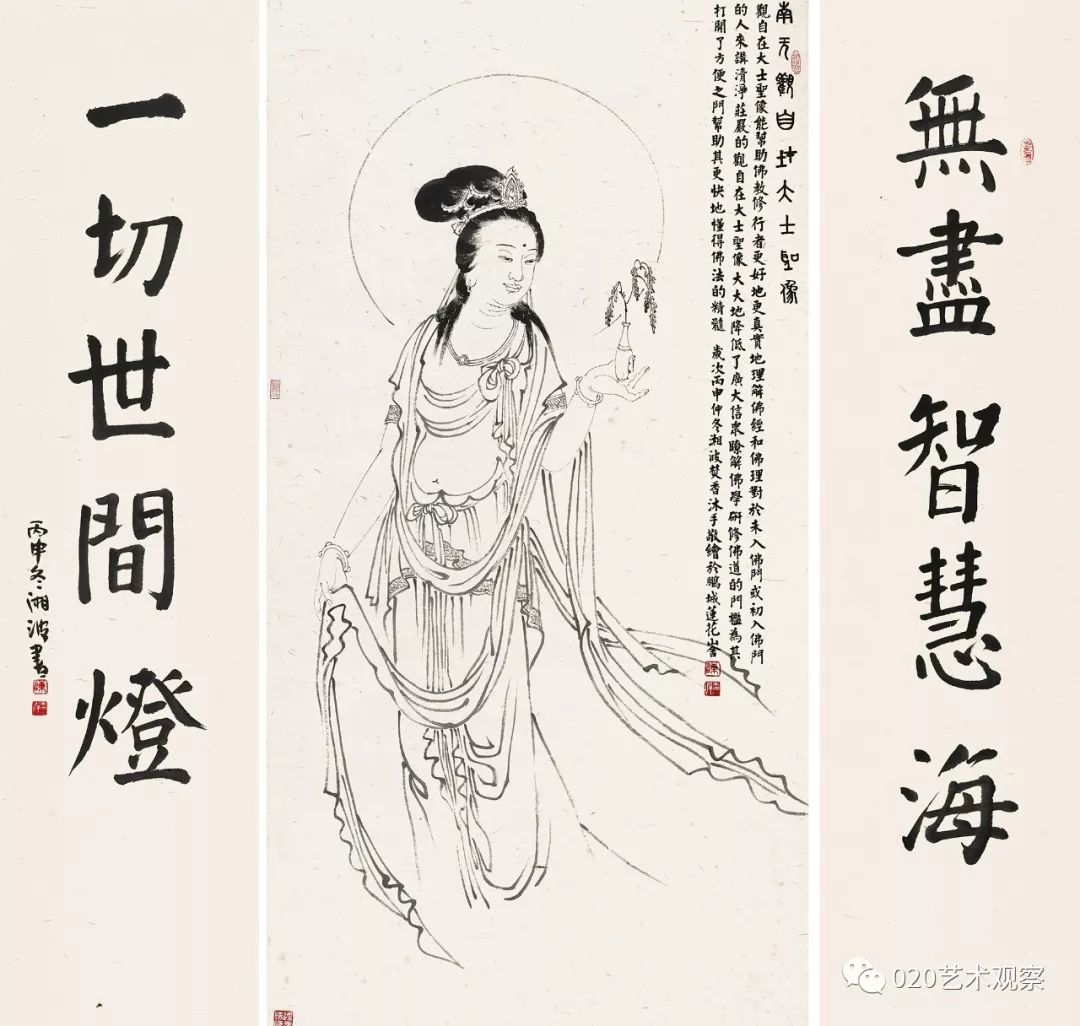 無盡智慧海
南无觀自在大士聖像
觀自在大士聖像能幫助佛教修行者更好地更真實地理解佛經和佛理對於未入佛門或初入佛門
的人來講清淨莊嚴的觀自在大士聖像大大地降低了廣大信衆瞭解佛學研修佛道的門檻為其
打開了方便之門幫助其更快地懂得佛法的精髓 歲次丙申仲冬湘波焚香沐手敬繪於鵬城蓮花山舍
一切世間燈
丙申冬湘波書
020艺术观察